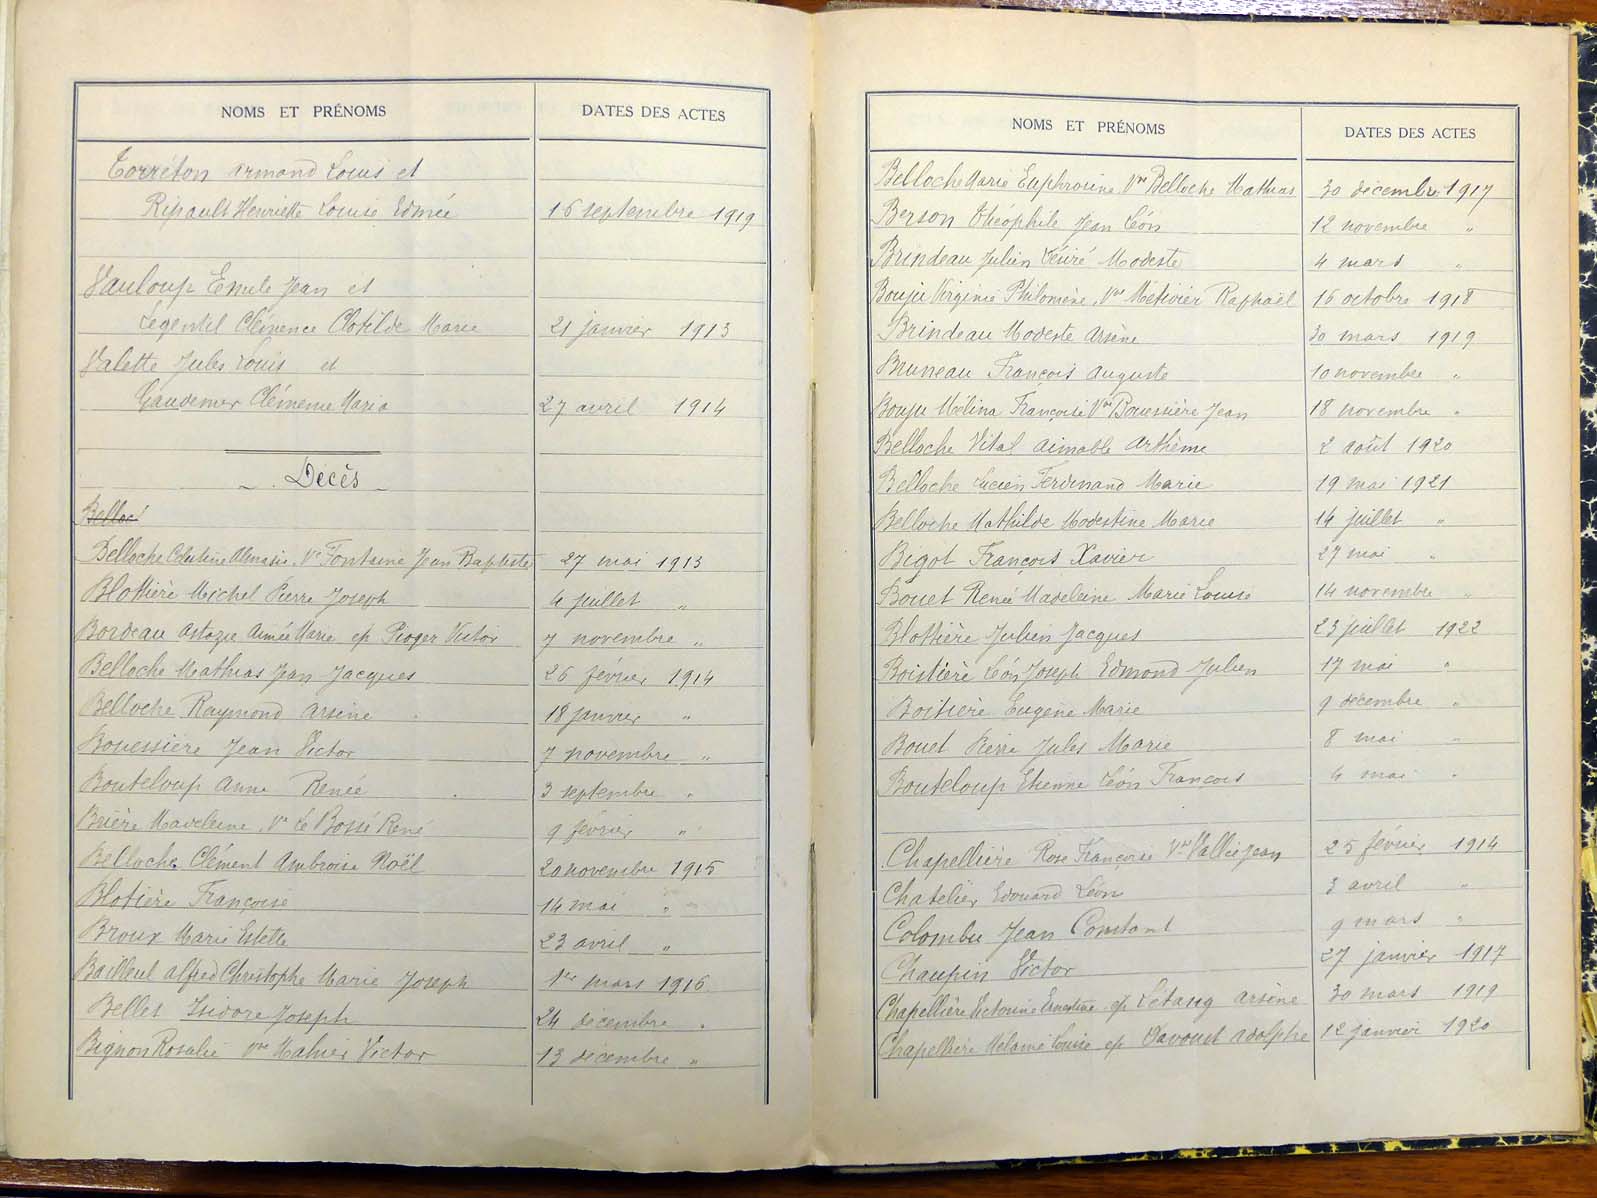 NOMS ET PRÉNOMS DATES DES ACTES
Torréton Armand Louis et
Ripault Henriette Louise Edmée 16 septembre 1919
Vauloup Emile Jean et
Legentil Clémence Clotilde Marie 21 janvier 1913
Valette Jules Louis et
Gaudemer Clémence Maria 27 avril 1914
Décès
Belloc
Belloche Célestine Almasie Ve Fontaine Jean Baptiste 27 mai 1913
Blottière Michel Pierre Joseph 4 juillet "
Bordeau Aimée Marie ep Pioger Victor 7 novembre "
Belloche Mathias Jean Jacques 26 février 1914
Belloche Raymond Arsène 18 janvier "
Bouessière Jean Victor 7 novembre "
Bouteloup Anne Renée 3 septembre "
Brière Madeleine Ve Le Bossé René 9 février "
Belloche Clément Ambroise Noël 20 novembre 1915
Blotière Françoise 14 mai "
Broux Marie Estelle 23 avril "
Bailleul Alfred Christophe Marie Joseph 1er mars 1916
Bellet Isidore Joseph 24 décembre "
Bignon Rosalie Vve Mahier Victor 13 décembre "
NOMS ET PRÉNOMS DATES DES ACTES
Belloche Marie Euphrosine Vve Belloche Mathias 30 décembre 1917
Berson Théophile Jean Léon 12 novembre "
Brindeau Julien Désiré Modeste 4 mars "
Bouju Virginie Philomène Vve Métivier Raphaël 16 octobre 1918
Brindeau Modeste Arsène 30 mars 1919
Bruneau François Auguste 10 novembre "
Bouju Mélina Françoise Vve Bouessière Jean 18 novembre "
Belloche Vital Aimable Arthème 2 août 1920
Belloche Lucien Ferdinand Marie 19 mai 1921
Belloche Mathilde Modestine Marie 14 juillet "
Bigot François Xavier 27 mai "
Bouet Renée Madeleine Marie Louise 14 novembre "
Blottière Julien Jacques 23 juillet 1922
Boistière Léon Joseph Edmond Julien 17 mai "
Boitière Eugène Marie 9 décembre "
Bouet Pierre Jules Marie 8 mai "
Bouteloup Etienne Léon François 4 mai "
Chapellière Rose Françoise Vve Vallée Jean 25 février 1914
Chatelier Edouard Léon 3 avril "
Colombu Jean Constant 9 mars "
Chaupin Victor 27 janvier 1917
Chapellière Victorine Ernestine ep Létang Arsène 30 mars 1919
Chapellière Mélanie Louise ep Davoust Adolphe 12 janvier 1920